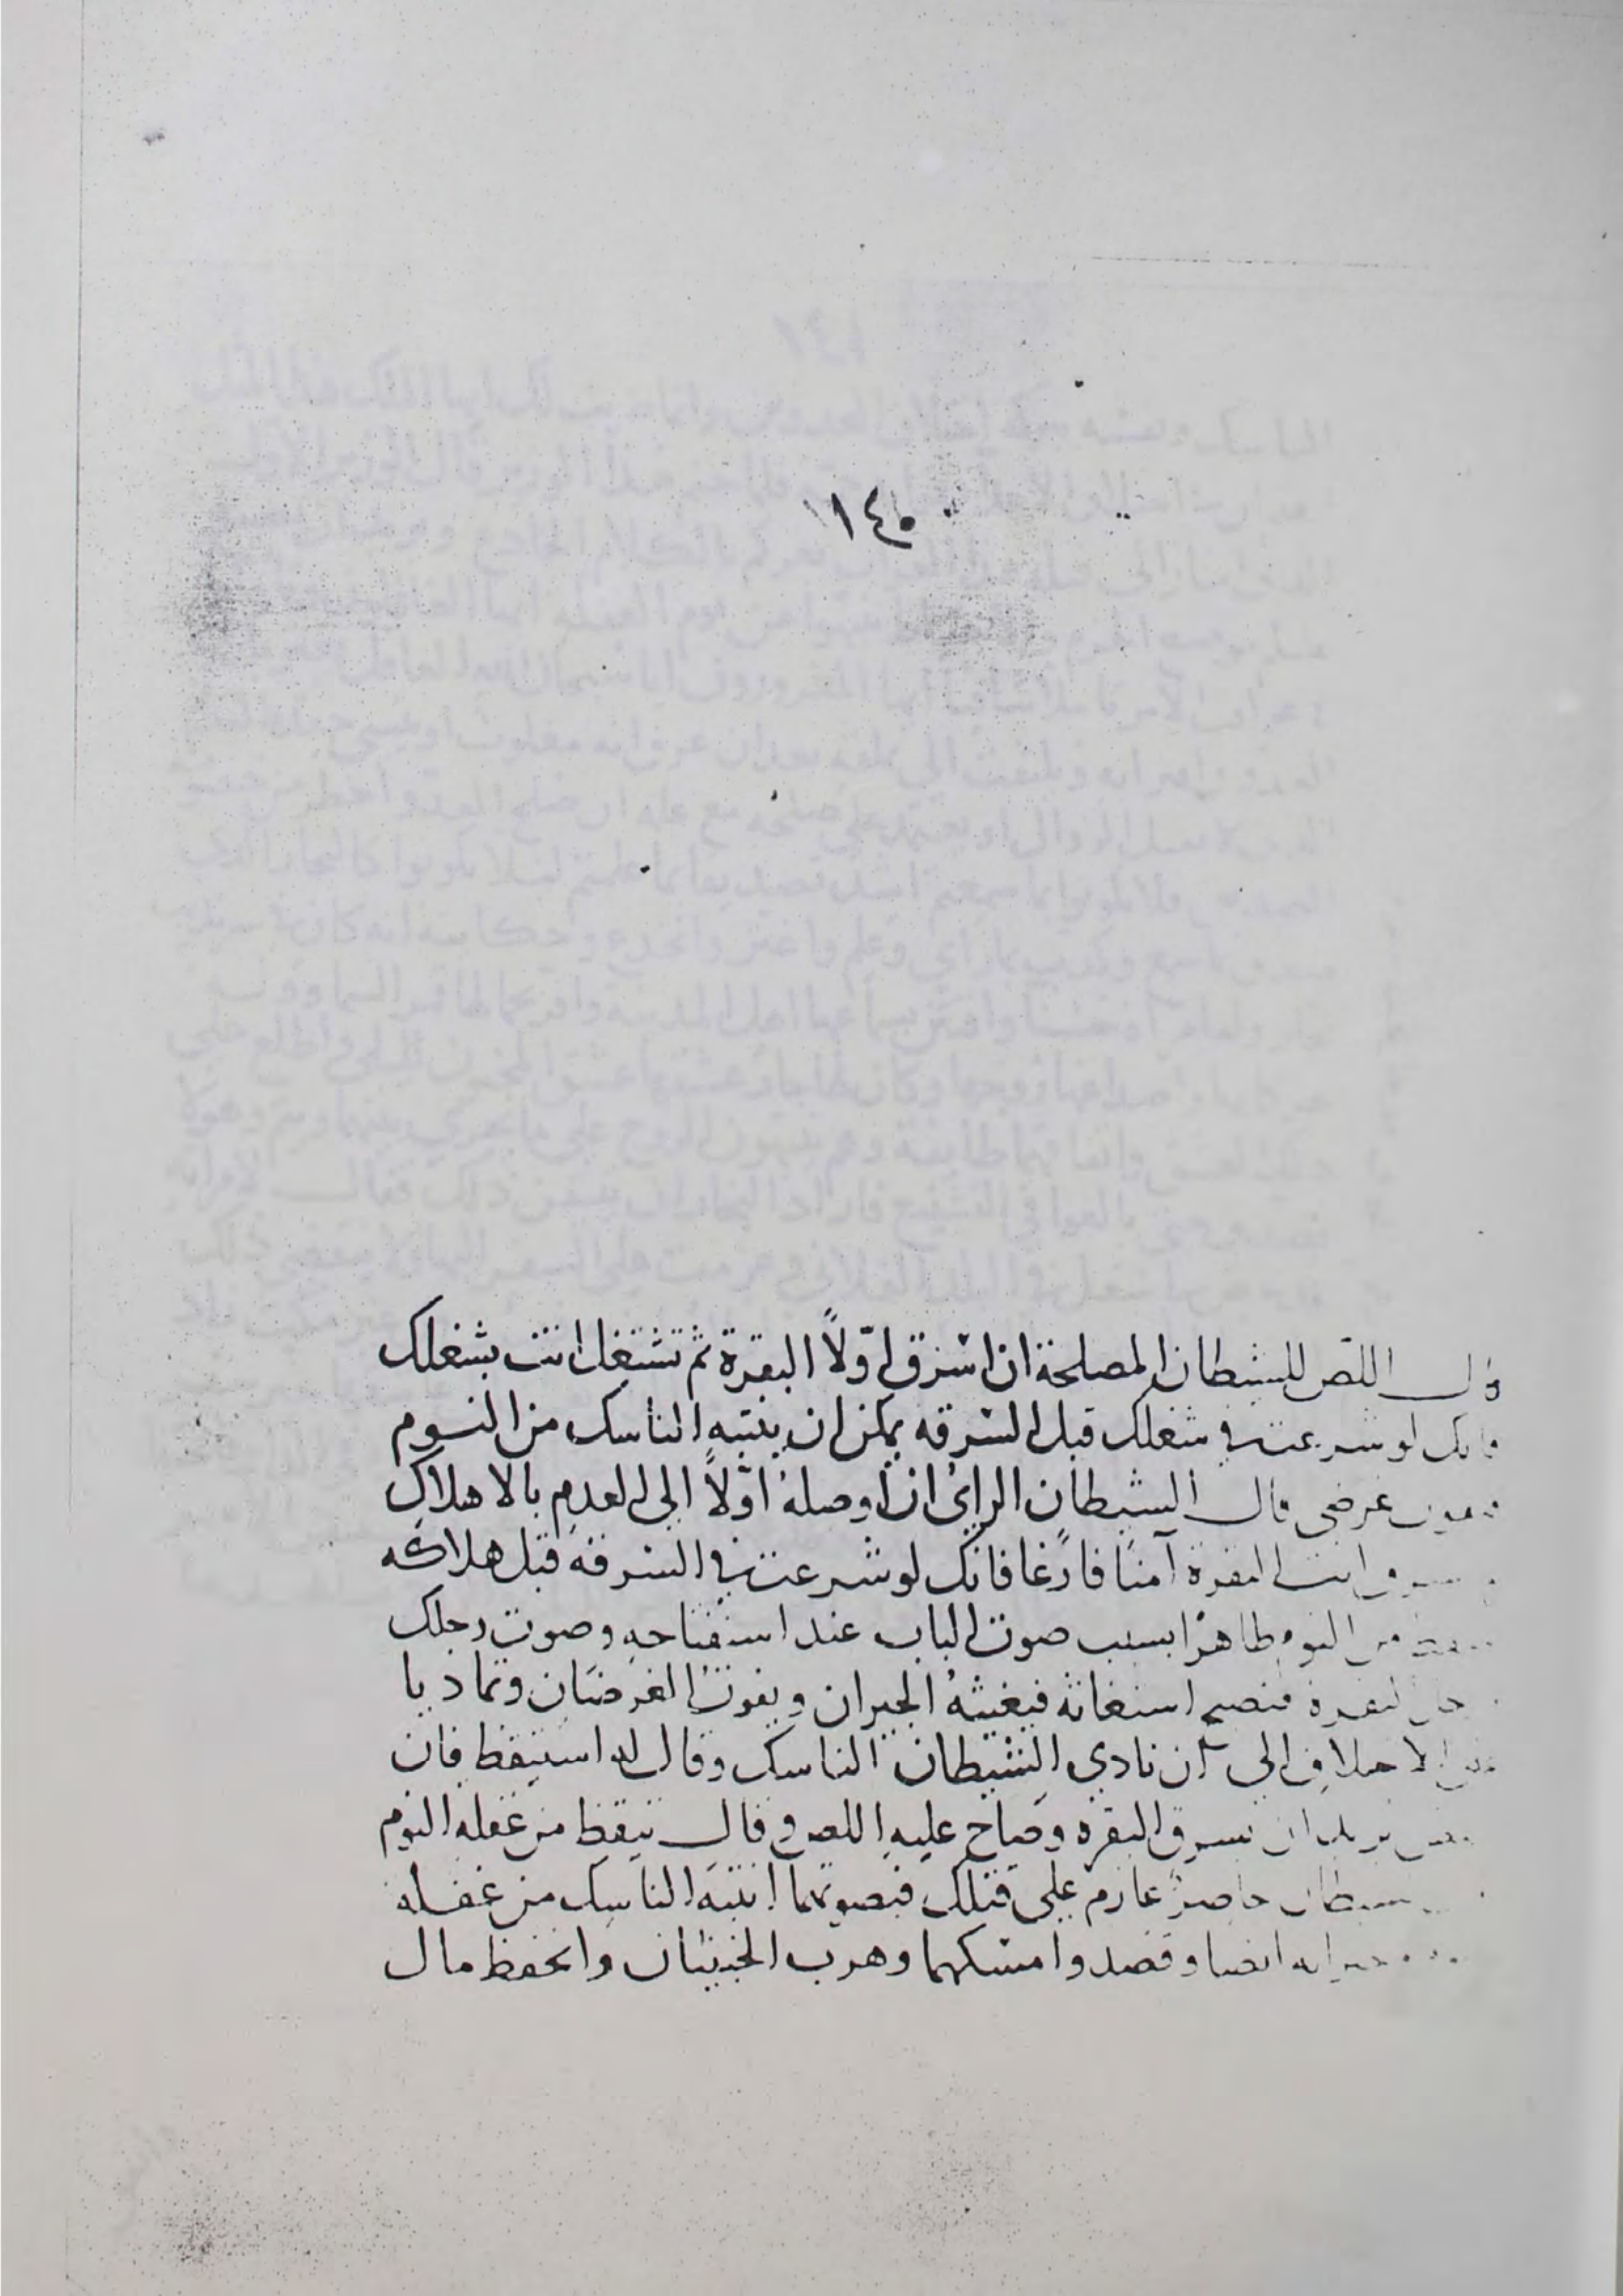 ١٤٥
قال اللص للشيطان المصلحة ان اسْرق اوّلاً البقرة ثم تشتغل انت بشغلك
فانك لو شرعت في شغلك قبل السّرقه يمكن ان ينتبه الناسك من النوم
غرضى قال الشيطان الراىُ ان اوصلهُ اوّلاً الى العدم بالاهلاك
انت البقرة آمنًا فارغا فانك لو شرعت في السرقه قبل هلاكه
من النوم ظاهرًا بسبب صوت الباب عند استفتاحه وصوت رجلك
البقرة فيصيح استغاثه فيغيثهُ الجيران ويفوت الغرضان وتماديا
الاختلاف الى ان نادي الشيطان الناسك وقال له استيقظ فان
يريد ان يسرق البقره وصاح عليه اللص وقال تيقظ من غفله النوم
حاضرٌ عازم على قتلك فبصوتهما انتبه الناسك من غفلته
ايضا وقصدوا امسكهما وهرب الخبيثان وانحفظ مال